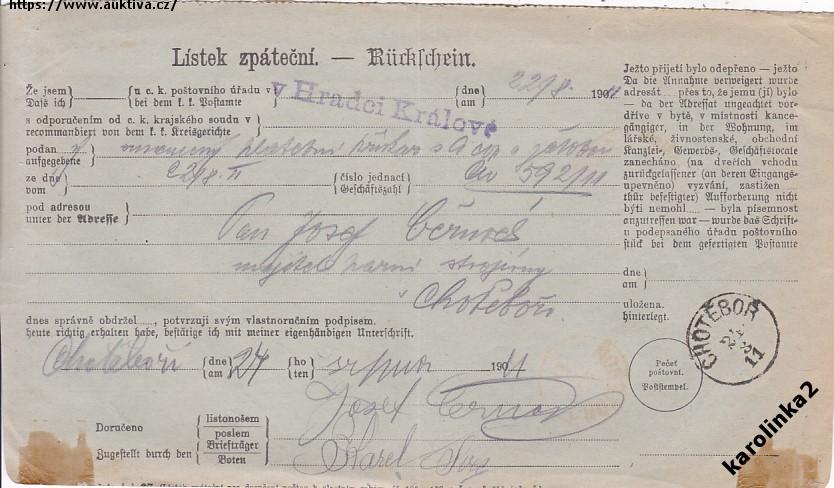 https://www.auktiva.cz/
Lístek zpáteční. — Rückschein.
Že jsem
Daß ich
u c. k. poštovního úřadu v
bei dem k. k. Postamte
v Hradci Králové
dne
am
22/8. 1911
s odporučením od c. k. krajského soudu v
recommandiert von dem k. k. Kreisgerichte
podan
aufgegebene
platební příkaz
ze dne
vom
22/8. 11
číslo jednací
Geschäftszahl
592/11
pod adresou
unter der Adresse
Pan Josef Černoš
majitel
strojírny
v Chotěboři
dnes správně obdržel....., potvrzuji svým vlastnoručním podpisem.
heute richtig erhalten habe, bestätige ich mit meiner eigenhändigen Unterschrift.
Chotěboři
dne
am
24
ho
ten
srpna 1911
Josef Černoš
Doručeno
Zugestellt durch den
listonošem
poslem
Briefträger
Boten
Karel
Ježto přijetí bylo odepřeno — ježto
Da die Annahme verweigert wurde
adresát ..... přes to, že jemu (jí) bylo
— da der Adressat ungeachtet vor-
dříve v bytě, v místnosti kance-
gängiger, in der Wohnung, im
lářské, živnostenské, obchodní
Kanzlei-, Gewerbs-, Geschäftslokale
zanecháno (na dveřích vchodu
zurückgelassener (an deren Eingangs-
upevněno) vyzvání, zastižen
thür befestigter) Aufforderung nicht
býti nemohl..... — byla písemnost
anzutreffen war — wurde das Schrift-
u podepsaného úřadu poštovního
stück bei dem gefertigten Postamte
dne
am
uložena.
hinterlegt.
CHOTĚBOŘ
11
Pečeť
poštovní.
Poststempel.
karolinka2